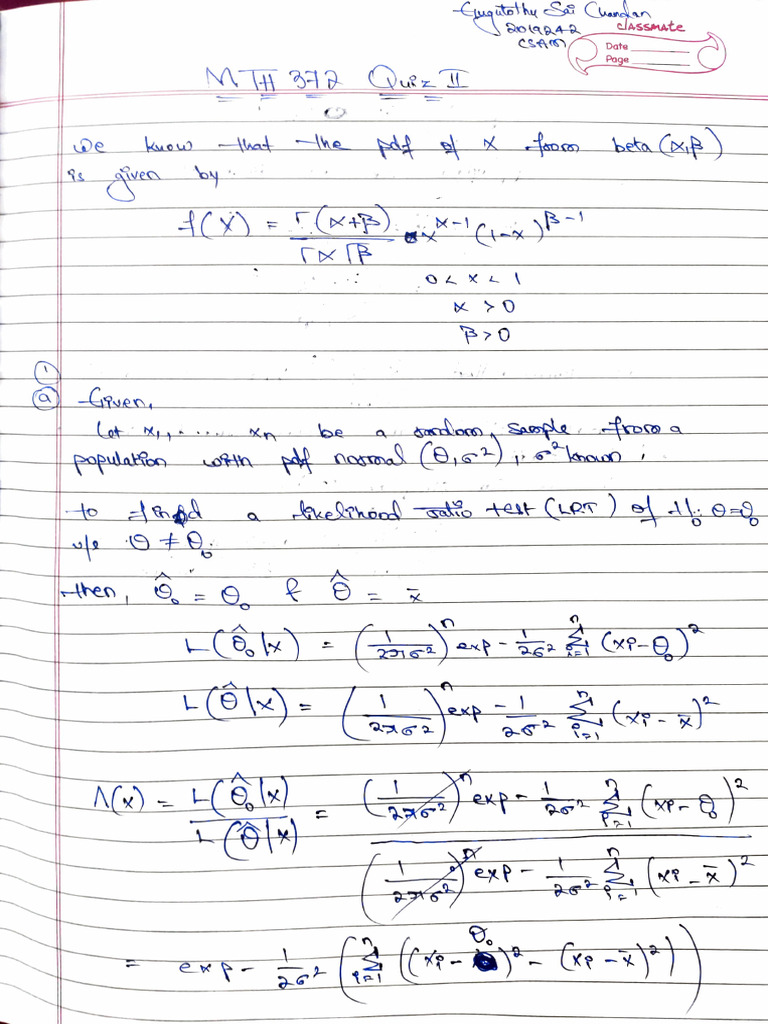 Gugutothu Sai Chandan
2019242
CSAM
CLASSMATE
Date
Page
MTH 372 Quiz II
We know that the pdf of X from beta(α,β)
is given by
f(X) = Γ(α+β) / ΓαΓβ · x^(α-1) (1-x)^(β-1)
0 < x < 1
α > 0
β > 0
①
ⓐ Given,
Let x₁, ..... xₙ be a random sample from a
population with pdf normal (θ, σ²), σ² known.
to find a likelihood ratio test (LRT) of H₀: θ=θ₀
v/s θ ≠ θ₀.
then, θ̂₀ = θ₀ & θ̂ = x̄
L(θ̂₀|x) = (1/2πσ²)ⁿ exp - 1/2σ² Σⁿᵢ₌₁ (xi-θ₀)²
L(θ̂|x) = (1/2πσ²)ⁿ exp - 1/2σ² Σⁿᵢ₌₁ (xi-x̄)²
Λ(x) = L(θ̂₀|x) / L(θ̂|x) = (1/2πσ²)ⁿ exp - 1/2σ² Σⁿᵢ₌₁ (xi-θ₀)² / (1/2πσ²)ⁿ exp - 1/2σ² Σⁿᵢ₌₁ (xi-x̄)²
= exp - 1/2σ² (Σⁿᵢ₌₁ ((xi-θ₀)² - (xi-x̄)²))